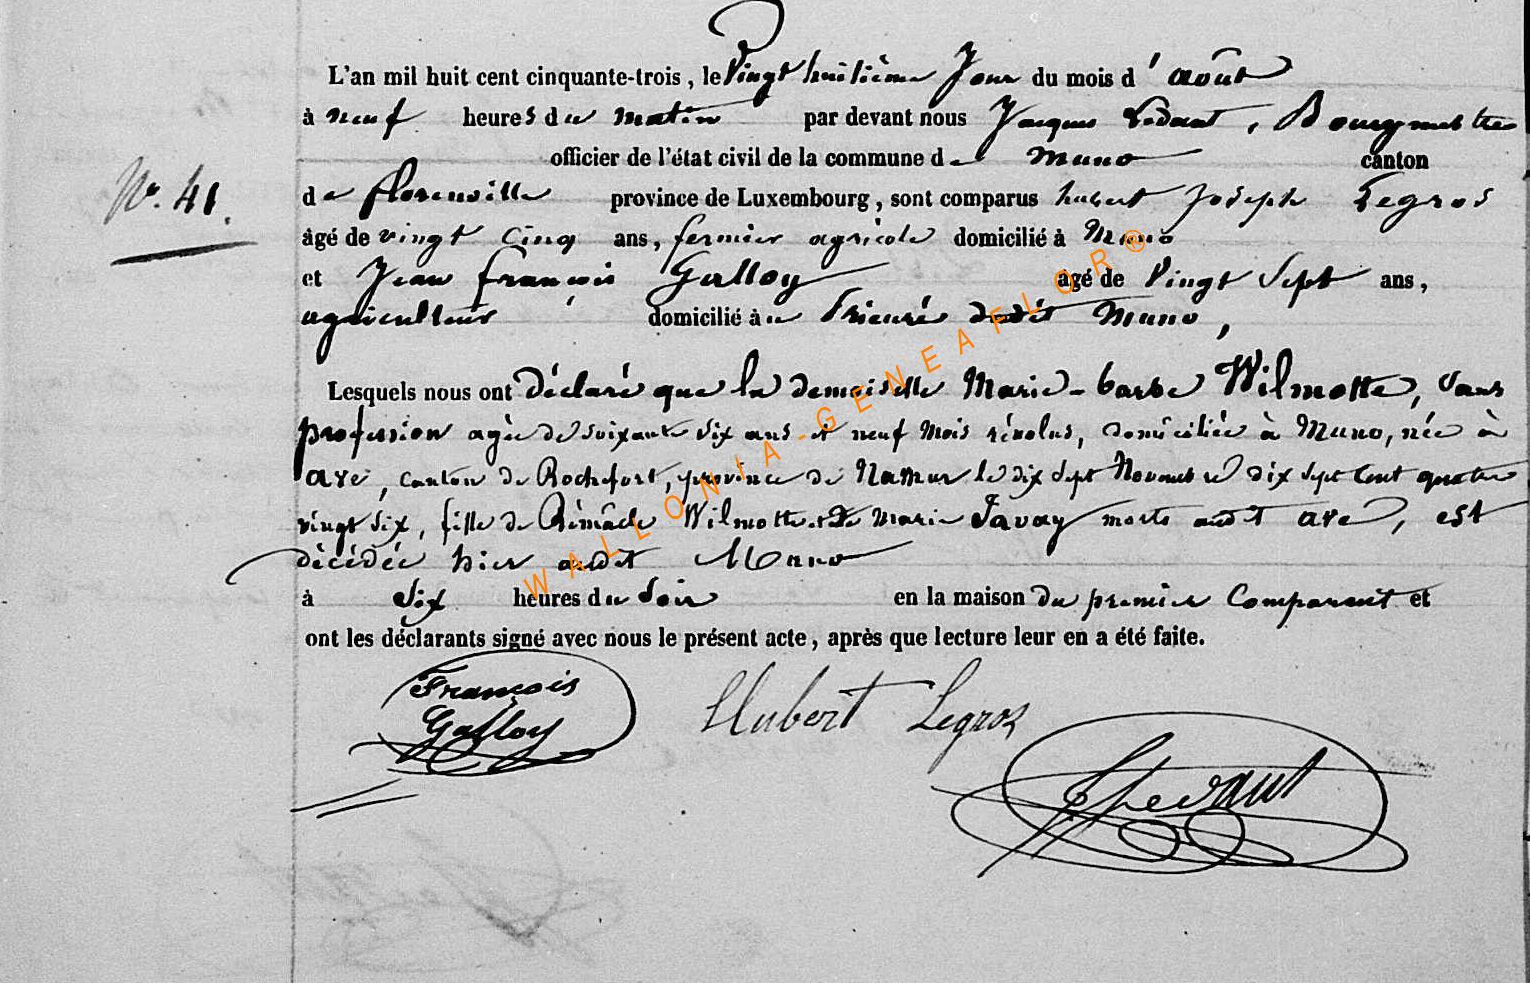 L'an mil huit cent cinquante-trois, le Vingt huitième Jour du mois d' août
à neuf heures du matin par devant nous Jacques Ledant, Bourgmestre
officier de l'état civil de la commune de Muno canton
N°. 41.
de florenville province de Luxembourg, sont comparus hubert Joseph Legros
âgé de vingt cinq ans, fermier agricole domicilié à Muno
et Jean françois Galloy agé de Vingt Sept ans,
agriculteur domicilié à au Prieuré dudit Muno,
Lesquels nous ont déclaré que la demoiselle Marie-barbe Wilmotte, Sans
profession agée de soixante six ans et neuf mois révolus, domiciliée à Muno, née à
ave, canton de Rochefort, province de Namur le dix sept Novembre dix sept cent quatre
vingt six, fille de Rémacle Wilmotte et de Marie Javay morts audit ave, est
décédée hier audit Muno
à Six heures du Soir en la maison du premier Comparant et
ont les déclarants signé avec nous le présent acte, après que lecture leur en a été faite.
François
Galloy
Hubert Legros
Ledant
WALLONIA-GENEAFLOR®